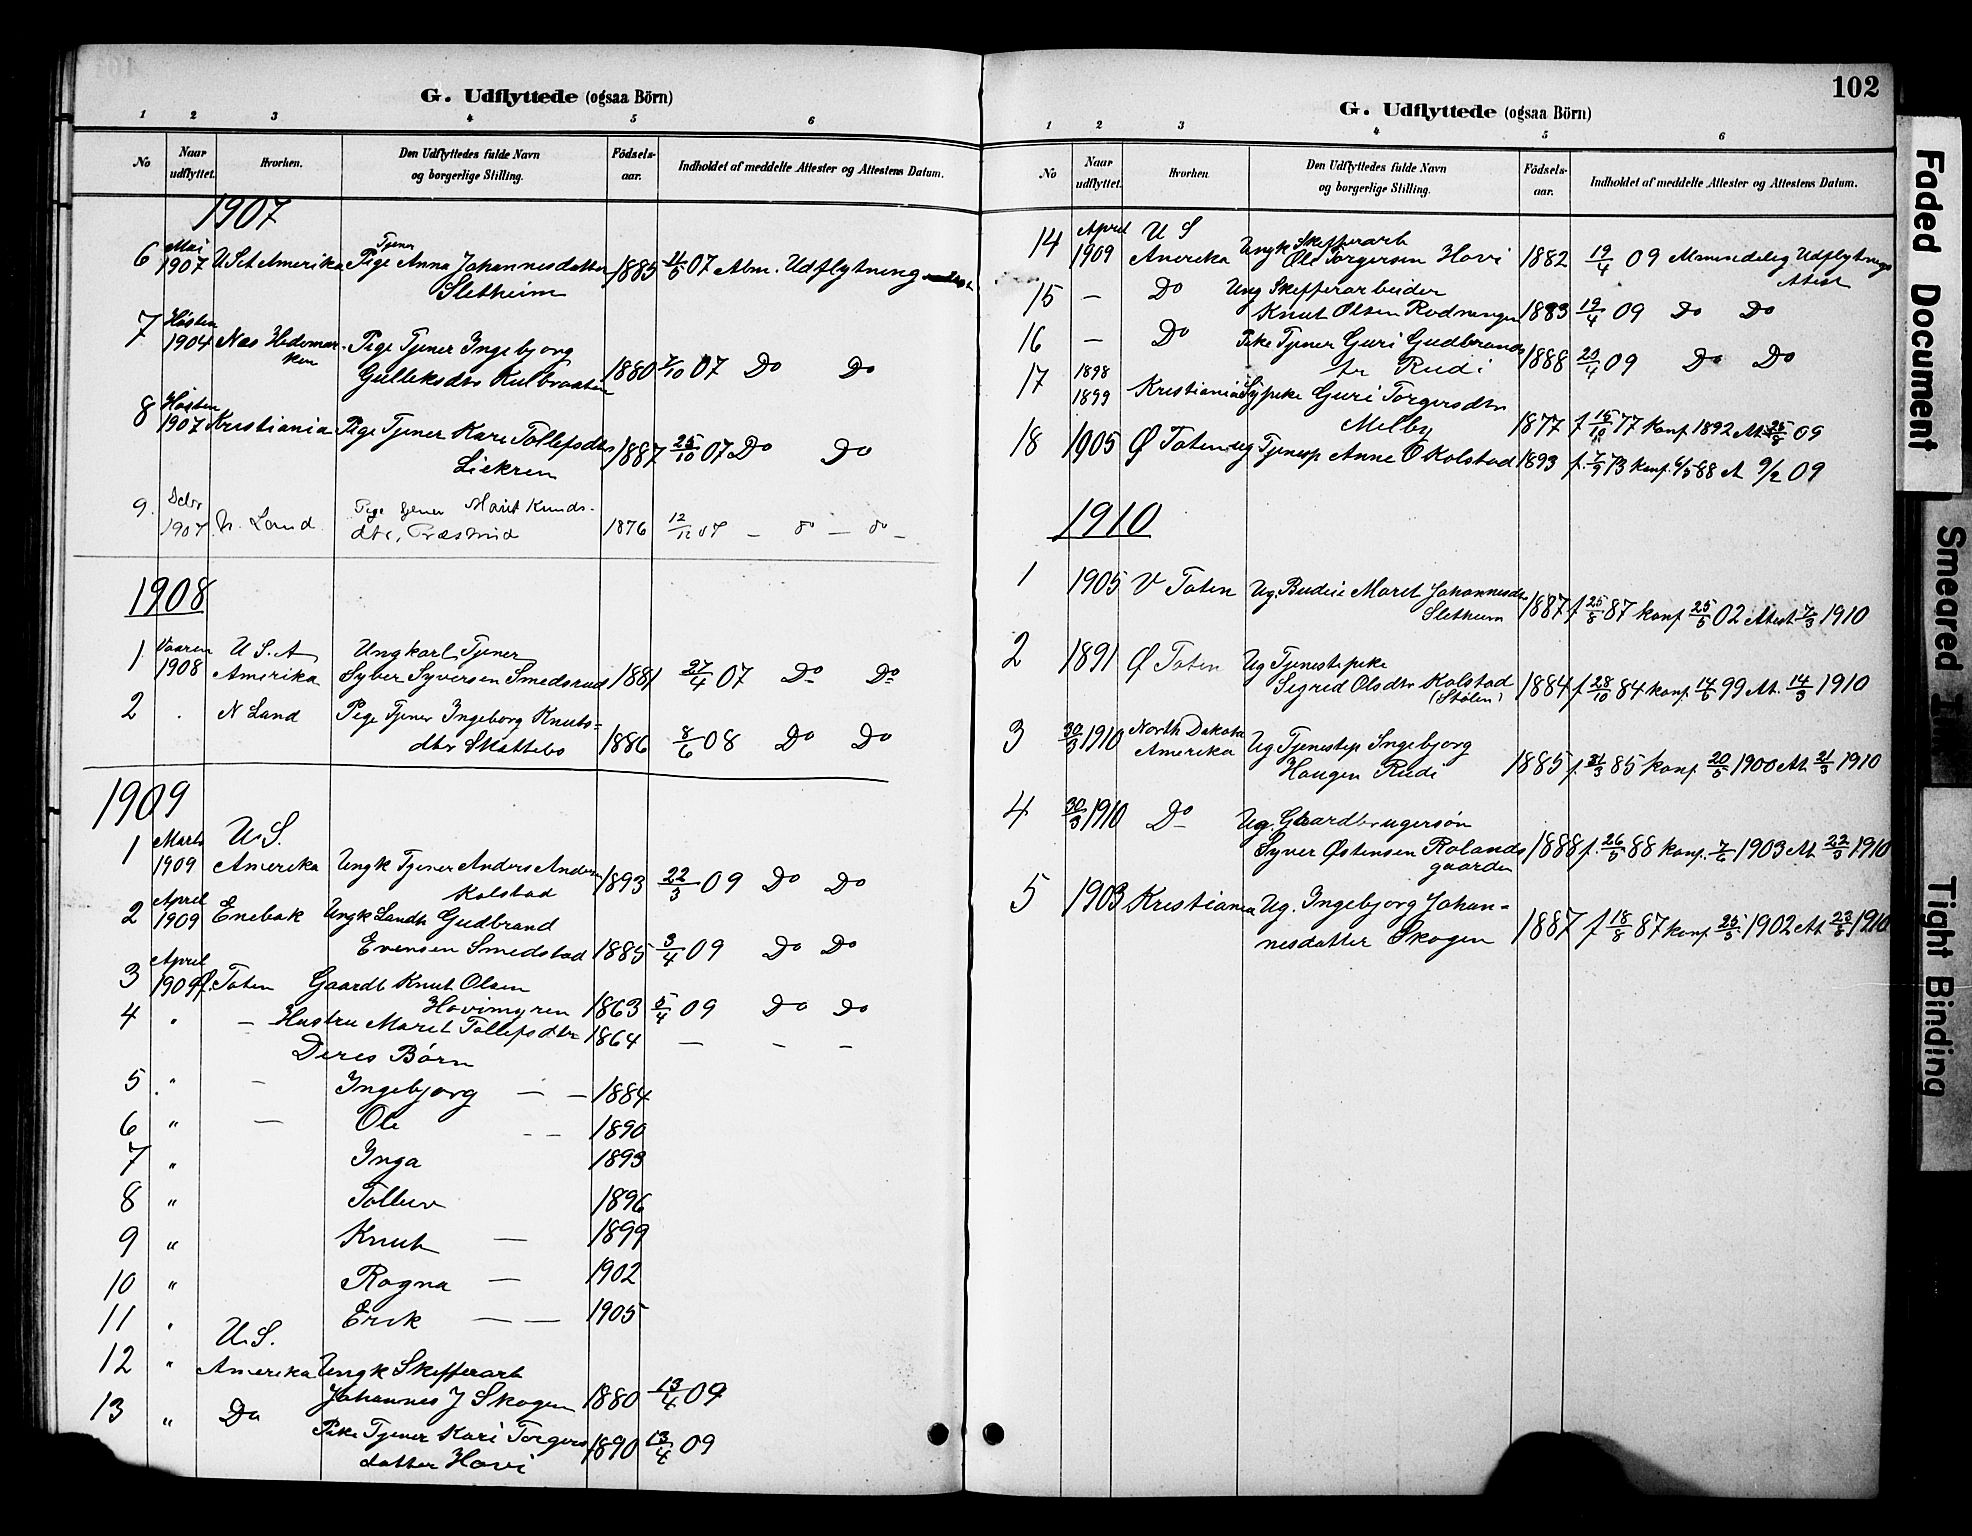 G. Udflyttede (ogsaa Börn)
1 2 3 4 5 6
No Naar udflyttet. Hvorhen. Den Udflyttedes fulde Navn og borgerlige Stilling. Födsels-aar. Indholdet af meddelte Attester og Attestens Datum.
1907
6 Mai 1907 U St Amerika Tjener Pige Anna Johannesdatter 1885 07 Alm. Udflytning
Sletheim
7 Høsten 1904 Nes Hedemarken Pige Tjener Ingebjorg
Gulleksdtr Kulbraaten 1880 7/10 07 Do Do
8 Høsten 1907 Kristiania Pige Tjener Kari Tollefsdtr 1887 25/10 07 Do Do
Liekren
9. Decbr 1907. N. Land Pige tjener Marit Knuds-
dtr, Præstrud 1876 12/12 07 — do — do —
1908
1 Vaaren 1908 U.S.A Amerika Ungkarl Tjener
Syver Syversen Smedsrud 1881 27/4 07 Do Do
2 . N Land Pige Tjener Ingeborg Knuts=
dtr Skattebo 1886 8/6 08 Do Do
1909
1 Marts 1909 U.S. Amerika Ungk Tjener Anders Anders
Kolstad 1893 22/3 09 Do Do
2 April 1909 Enebak Ungk Landh Gudbrand
Evensen Smedstad 1885 3/4 09 Do Do
3 April 1909 Ø. Toten Gaardb Knut Olsen
Hovimyren 1863 5/4 09 Do Do
4 . — Hustru Marit Tollefsdtr 1864 — — —
Deres Börn
5 " — Ingebjorg — — 1884
6 " — Ole — — 1890
7 " Inga 1893
8 " Tollew 1896
9 " Knut — 1899
10 " Ragna — 1902
11 . Erik — — 1905
12 " U.S. Amerika Ungk Skifferarb
Johannes J Skogen 1880 13/4 09
13 " Do Pike Tjener Kari Torgers
datter Hovi 1890 13/4 09
102
G. Udflyttede (ogsaa Börn)
1 2 3 4 5 6
No Naar udflyttet. Hvorhen Den Udflyttedes fulde Navn og borgerlige Stilling. Födsels-aar. Indholdet af meddelte Attester og Attestens Datum.
14 April 1909 U S Amerika Ungk Skifferarb
Ole Torgersen Hovi 1882 19/4 09 Almindelig Udflytnings
Attest
15 — Do Ung Skifferarbeider
Knut Olsen Rodningen 1883 19/4 09 Do Do
16 — Do Pike Tjener Guri Gudbrands
dtr Rudi 1888 20/4 09 Do Do
17 1898 1899 Kristiania Sypike Guri Torgersdtr
Melby 1877 f 15/10 77 konf. 1892 At 09
18 1905 Ø Toten ug Tjenesp Anne O Kolstad 1893 f. 7/9 73 konf. 88 A 9/2 09
1910
1 1905 V Toten Ug. Budeie Marit Johannesdtr
Sletheim 1887 f 25/8 87 konf 25/5 02 Attest 7/3 1910
2 1891 Ø Toten Ug Tjenestepike
Sigrid Olsdtr Kolstad 1884 f 28/10 84 konf. 99 At. 14/3 1910
(Stölen)
3 30/3 1910 North Dakota Amerika Ug Tjenestep Ingebjorg
Haugen Rudi 1885 f. 31/3 85 konf 20/5 1900 At 21/3 1910
4 30/3 1910 Do Ug. Gaardbrugersön
Syver Østensen Rolands 1888 f. 26/5 88 konf. 7/6 1903 At 22/3 1910
gaarden
5 1903 Kristiania Ug. Ingebjorg Johan-
nesdatter Skogen 1887 f 18/8 87 konf 25/5 1902 At 1910
Faded Document
Smeared
Tight Binding